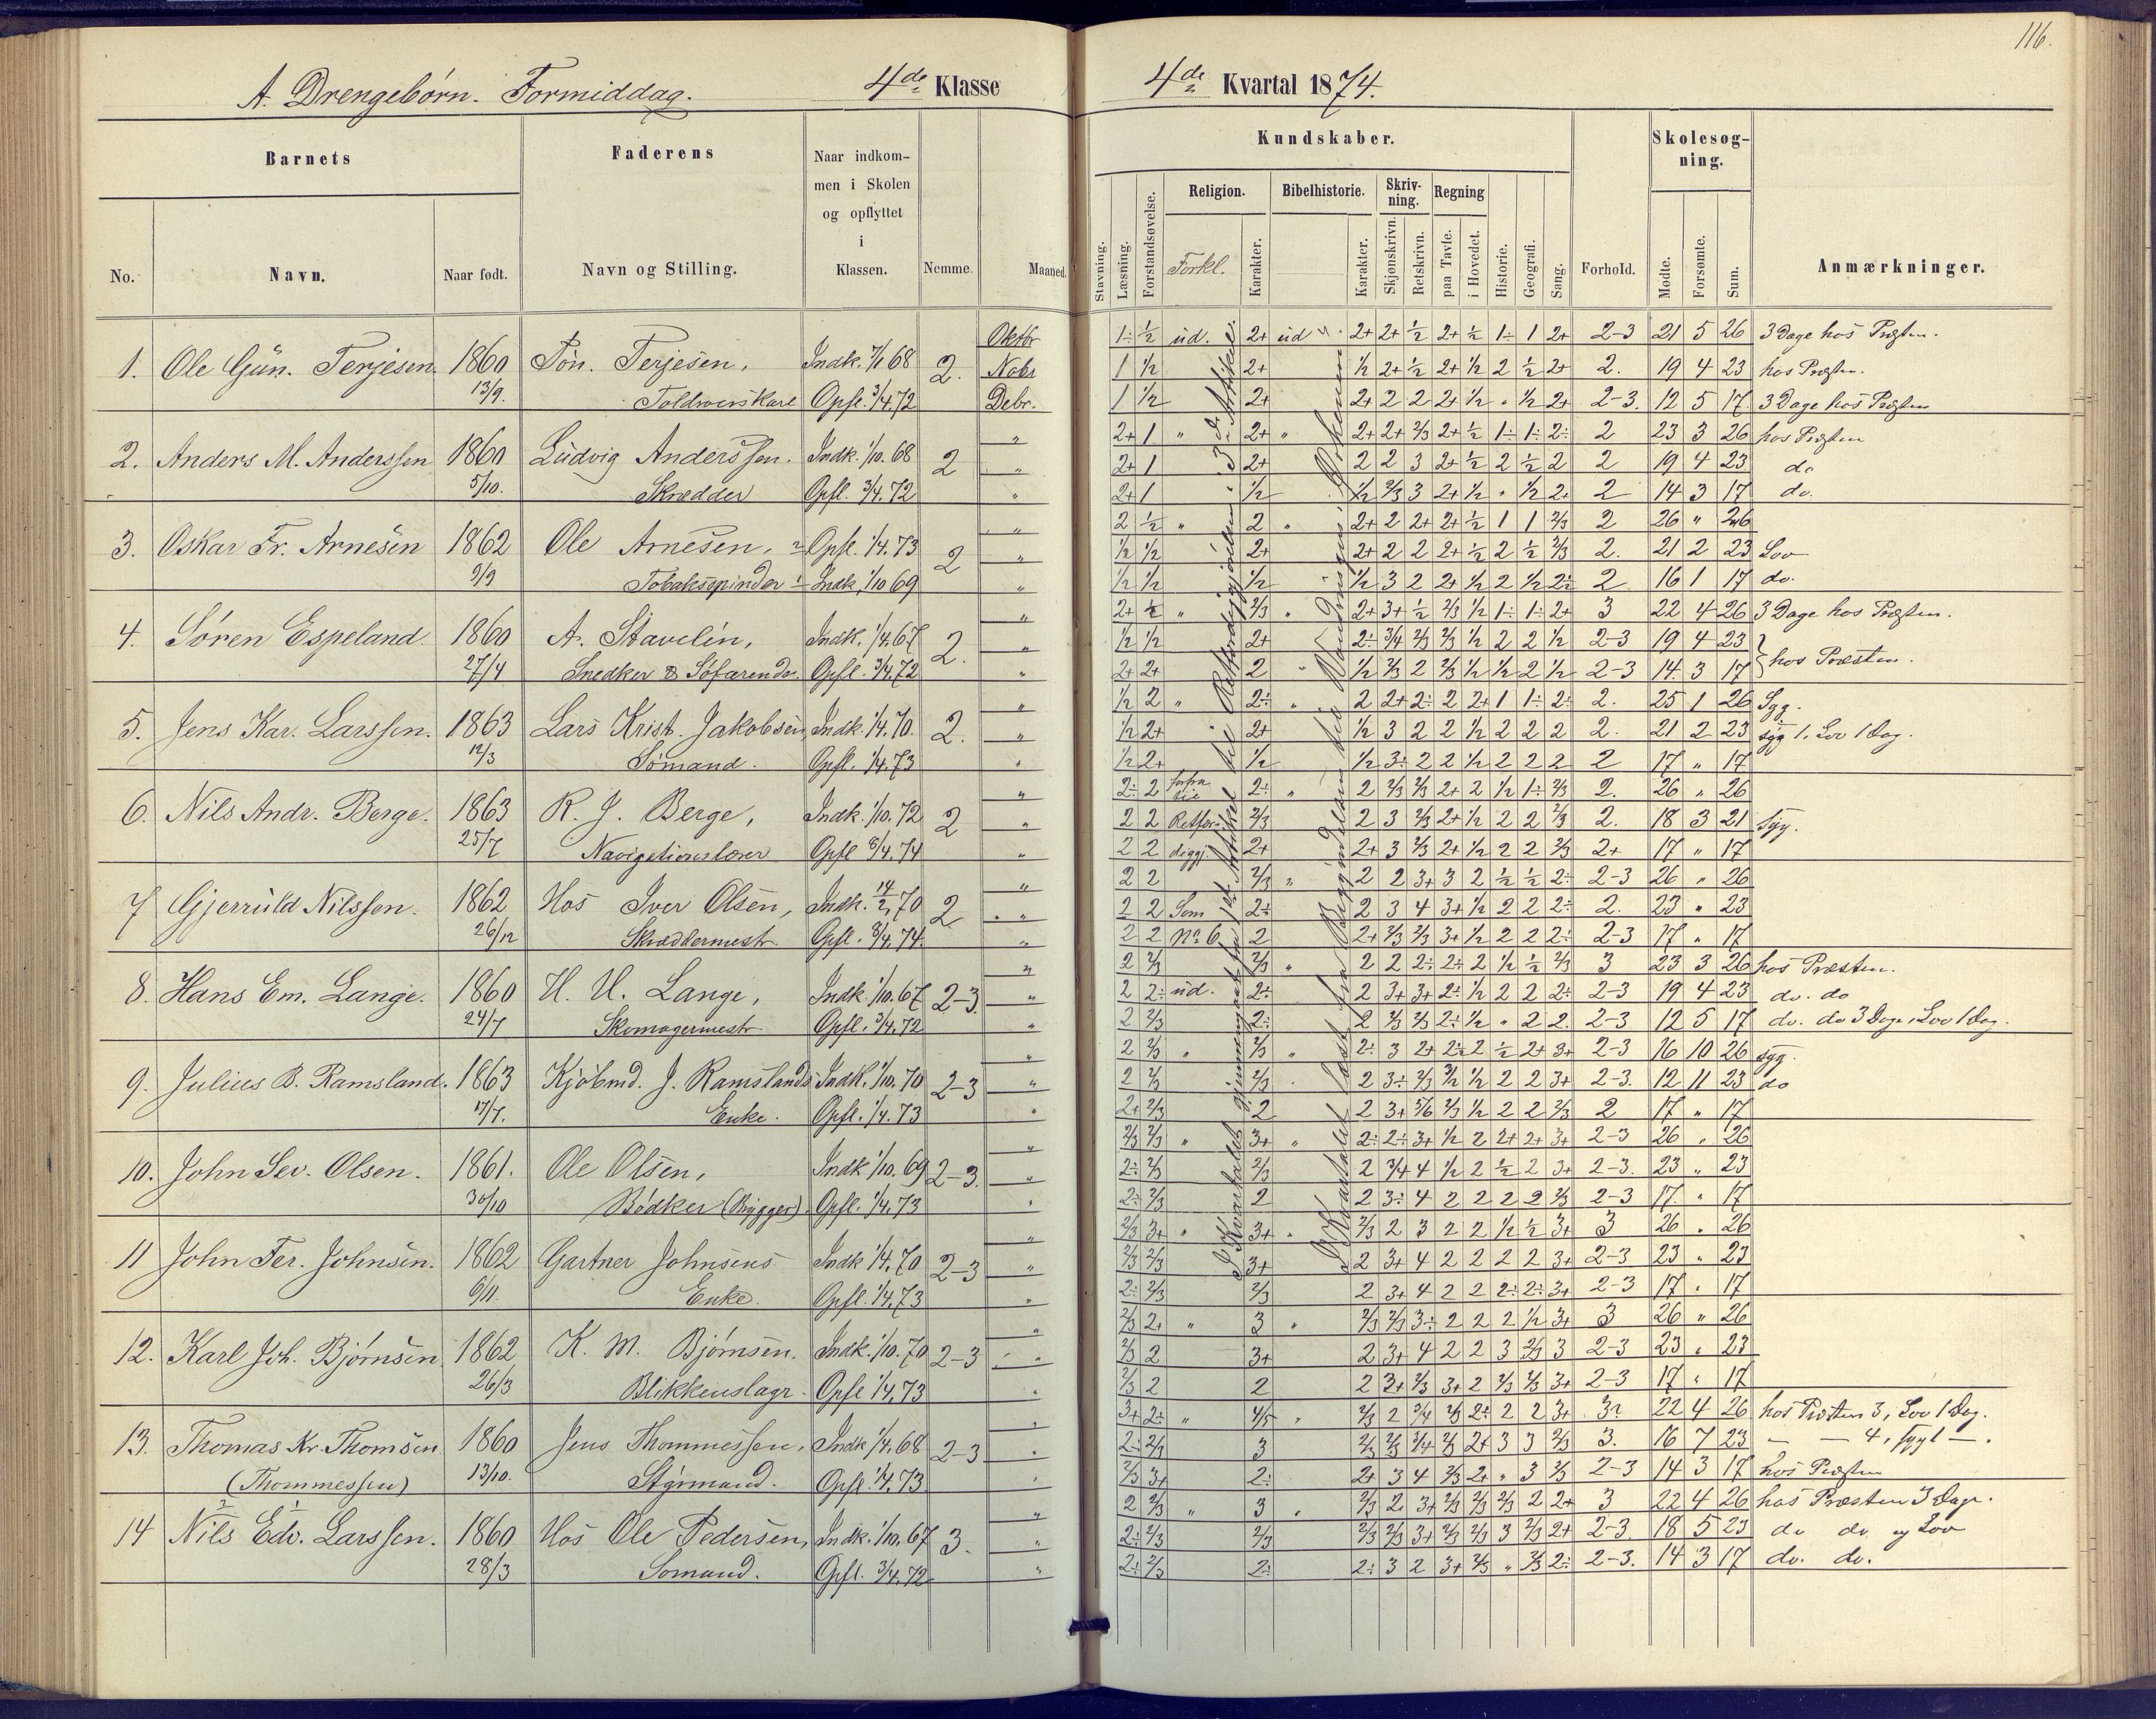 116.
A. Drengebørn. Formiddag. 4de Klasse
4de Kvartal 1874.
Barnets
Faderens
Naar indkom-
men i Skolen
og opflyttet
i
Klassen.
No.
Navn.
Naar født.
Navn og Stilling.
Nemme.
Maaned.
Kundskaber.
Skolesøg-
ning.
Stavning.
Læsning.
Forstandsøvelse.
Religion.
Forkl.
Karakter.
Bibelhistorie.
Karakter.
Skriv-
ning.
Skjønskrivn.
Retskrivn.
Regning
paa Tavle.
i Hovedet.
Historie.
Geografi.
Sang.
Forhold.
Mødte.
Forsømte.
Sum.
Anmærkninger.
1. Ole Gun. Terjesen. 1860 13/9. Tøn. Terjesen, Indk. 68 Opfl. 3/4.72 2.
Oktbr 1÷ ½ ud. 2+ ud 2+ 2+ ½ 2+ ½ 1÷ 1 2+ 2-3 21 5 26 3 Dage hos Præsten.
Nobr 1 ½ 2+ ½ 2+ ½ 2+ ½ 2 ½ 2+ 2. 19 4 23 hos Præsten.
Debr. 1 ½ 2+ 2+ 2 2 2+ ½ " ½ 2+ 2-3. 12 5 17 3 Dage hos Præsten
2. Anders M. Anderssen 1860 5/10. Ludvig Anderssen. Skrædder Indk. 1/10. 68 Opfl. 3/4.72 2
" 2+ 1 " 2+ " 2+ 2+ 2/3 2+ ½ 1÷ 1÷ 2÷ 2 23 3 26 hos Præsten
" 2+ 1 2+ 2 2 3 2+ ½ 2 ½ 2 2 19 4 23 do
" 2+ 1 ½ ½ 2/3 3 2+ ½ " ½ 2÷ 2 14 3 17 do.
3. Oskar Fr. Arnesen 1862 9/9 Ole Arnesen, Tobakspinder Opfl. 1/4.73 Indk. 1/10 69 2
" 2 ½ " 2 " 2+ 2 2+ 2+ ½ 1 1 2/3 2 26 " 26
" ½ ½ 2+ 2+ 2 2 2+ ½ 2 ½ 2/3 2. 21 2 23 Lov
" ½ ½ ½ ½ 3 2 2+ ½ 2 ½ 2÷ 2 16 1 17 do.
4. Søren Espeland. 1860 27/4 A. Stavelin, Snedker & Søfarende. Indk. 1/4.67 Opfl. 3/4.72 2.
" 2+ ½ " 2/3 " 2+ 3+ ½ 2/3 ½ 1÷ 1÷ 2+ 3 22 4 26 3 Dage hos Præsten.
" ½ ½ 2+ 2÷ 3/4 2/3 2/3 ½ 2 2 ½ 2-3 19 4 23
" 2+ 2+ 2 " ½ 2/3 2 2/3 ½ ½ 2 ½ 2-3 14. 3 17 hos Præsten.
5. Jens Kar. Larssen. 1863 12/3 Lars Krist. Jakobsen, Sømand. Indk. 1/4.70. Opfl. 1/4.73 2.
" ½ 2 " 2÷ " 2 2+ 2÷ 2 2+ 1 1÷ 2÷ 2. 25 1 26 Syg.
" ½ 2+ 2+ ½ 3 2 2 ½ 2 2 2 2. 21 2 23 syg 1. Lov 1 Dag.
" ½ 2+ ½ ½ 3÷ 2 2 ½ 2 2 2 2 17 " 17
6. Nils Andr. Berge. 1863 25/7 R. J. Berge, Navigationslærer Indk. 1/10. 72 Opfl 8/4.74 2
" 2÷ 2 forfra til 2÷ " 2 2/3 2/3 2+ 2 ½ 1÷ 2/3 2. 26 " 26
" 2 2 Retfær- 2/3 2 3 2/3 2+ ½ 2 2 2/3 2. 18 3 21 Syg.
" 2 2 diggj. 2+ 2+ 3 2/3 2+ ½ 2 2 2/3 2+ 17 " 17
7 Gjerruld Nilssen. 1862 26/12 Hos Iver Olsen, Skræddermestr Indk. 14/2 70 Opfl. 8/4.74. 2
" 2 2 2/3 " 2 2 3+ 3 2 ½ ½ 2÷ 2-3 26 " 26
" 2 2 Som 2÷ 2 3 4 3+ ½ 2 2 2÷ 2. 23 " 23
" 2 2 No 6 2 2+ 2/3 2/3 3+ ½ 2 2 2÷ 2-3 17 " 17
8. Hans Em. Lange. 1860 24/7 H. U. Lange, Skomagermestr Indk. 1/10. 67 Opfl. 3/4.72 2-3
" 2 2/3 2/3 " 2 2 2÷ 2÷ 2 ½ ½ 2/3 3 23 3 26 hos Præsten.
" 2 2÷ ud. 2÷ 2 3+ 3+ 2÷ ½ 2 2 2÷ 2-3 19 4 23 do. do
" 2 2/3 2÷ 2 2/3 2/3 2÷ ½ " 2 2. 2-3 12 5 17 do. do 3 Dage, Lov 1 Dag.
9. Julius B. Ramsland. 1863 17/7. Kjøbmd. J. Ramslands Enke. Indk. 1/10. 70 Opfl. 1/4.73 2-3
" 2 2/3 " 2/3 " 2÷ 3 2+ 2÷ 2 ½ 2+ 3+ 2-3 16 10 26 syg.
" 2 2/3 2/3 2 3÷ 2/3 3/2 ½ 2 2 3+ 2-3. 12 11 23 do
" 2+ 2/3 2 2 3+ 5/6 2/3 ½ 2 2 2/3 2 17 " 17
10. John Sev. Olsen. 1861. 30/10 Ole Olsen, Bødker (Brygger). Indk 1/10. 69 Opfl. 1/4.73 2-3.
" 2/3 2/3 " 3+ " 2÷ 2÷ 3+ ½ 2 2+ 2+ 3+ 2-3 26 " 26
" 2÷ 2/3 2/3 2 3/4 4 ½ 2 ½ 2 3+ 2-3. 23 " 23
" 2÷ 2/3 2 2 3÷ 4 2 2 2 2 2/3 2-3 17. " 17
11 John Fer. Johnsen. 1862 6/11. Gartner Johnsens Enke. Indk 1/4.70 Opfl. 1/4.73 2-3
" 2/3 3+ " 3+ " 2/3 2 3 2 2 ½ ½ 3+ 3 26 " 26
" 2/3 2/3 3+ 2 3+ 4 2 2 2 2 3+ 2-3 23 " 23
" 2÷ 2/3 2/3 2 3+ 4 2 2 2÷ 2÷ 3+ 2-3 17 " 17
12. Karl Joh. Bjørnsen 1862 26/3 K. M. Bjørnsen. Blikkenslagr. Indk. 1/10. 70 Opfl 1/4.73 2-3
" 2/3 2+ " 3 " 2/3 2/3 3÷ 2 2 2 ½ 3+ 3 26 " 26
" 2/3 2 3+ 2 3+ 4 2 2 3 2/3 3 2-3 23 " 23
" 2/3 2 2 2 3+ 2/3 3+ 2 2/3 2/3 3+ 2-3 17 " 17
13. Thomas Kr. Thomsen (Thommessen) 1860 13/10. Jens Thommessen, Styrmand. Indk 1/4.68 Opfl. 1/4.73 2-3
" 3+ 2÷ " 4/5 " 2/3 2 3/4 2/3 2÷ 2 2 3+ 3 22 4 26 hos Præsten 3, Lov 1 Dag.
" 2÷ 2/3 3 2/3 2/3 3/4 2/3 2+ 3 3 2/3 3. 16 7 23 — — 4, sygl —.
" 2/3 3+ 2÷ 2+ 3 4 2/3 2+ " 3 2/3 2-3 14 3 17 hos Præsten
14 Nils Edv. Larssen. 1860 28/3 Hos Ole Pedersen, Sømand. Indk. 1/10. 67 Opfl. 3/4.72 3.
" 2 2/3 " 3 " 2/3 2 3+ 2/3 2/3 2/3 2 2+ 3 22 4 26 hos Præsten 3 Dage.
" 2÷ 2/3 2/3 2/3 2/3 3+ 2/3 2/3 3 2/3 2+ 2-3 18 5 23 do do og Lov
" 2÷ 2/3 2÷ 2÷ 3 2 3+ 2/3 " 2/3 2÷ 2-3. 14 3 17 do. do.
I Kvartalet gjennemgaaet fra 1ste Artikel til Retfærdiggjørelsen i 3die Artikel.
I Kvartalet læst fra Begyndelsen til Vandringen i Ørkenen